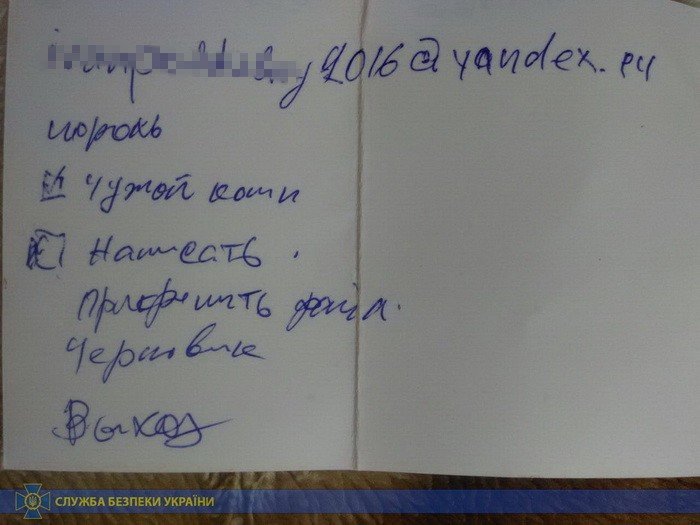 2016@yandex.ru
пороль
Чужой комп
Написать.
Прикрепить файл.
Черновик
Выход
СЛУЖБА БЕЗПЕКИ УКРАЇНИ